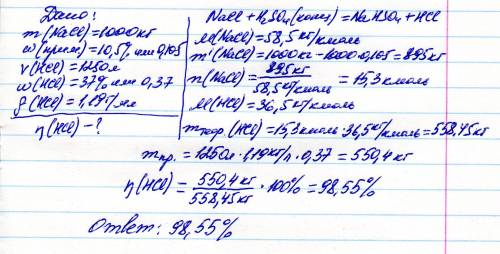 Дано:
m(NaCl)=1000кг
ω(прим)=10,5% или 0,105
V(HCl)=1250л
ω(HCl)=37% или 0,37
ρ(HCl)=1,19г/мл
η(HCl)-?
NaCl+H₂SO₄(конц)=NaHSO₄+HCl
M(NaCl)=58,5кг/кмоль
m'(NaCl)=1000кг-1000·0,105=895кг
n(NaCl)=895кг/58,5кг/кмоль=15,3кмоль
M(HCl)=36,5кг/кмоль
mтеор.(HCl)=15,3кмоль·36,5кг/кмоль=558,45кг
mпр.=1250л·1,19кг/л·0,37=550,4кг
η(HCl)=550,4кг/558,45кг·100%=98,55%
Ответ: 98,55%